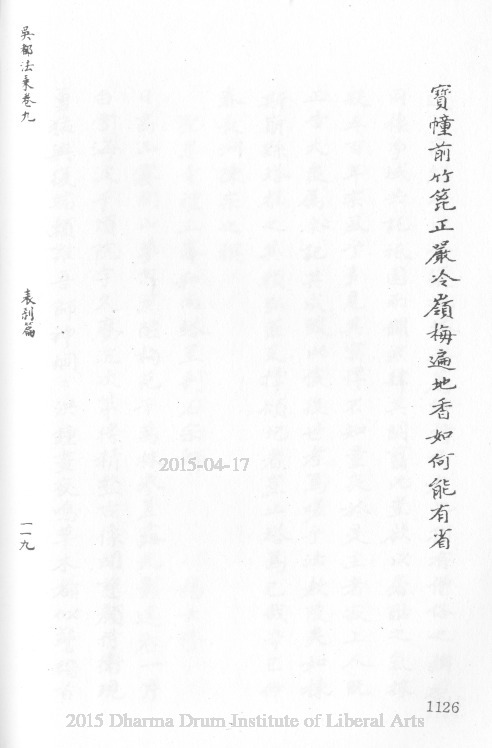 寶幢前竹篦正嚴冷嶺梅遍地香如何能有省
吳都法乘卷九
表刹篇
一一九
2015-04-17
1126
2015 Dharma Drum Institute of Liberal Arts